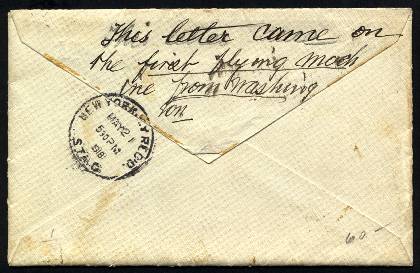 This letter came on
the first flying mach
ine from Washing
ton
NEW YORK, N.Y. REC'D.
MAY 21
5 PM
1918
STA. G
60.-